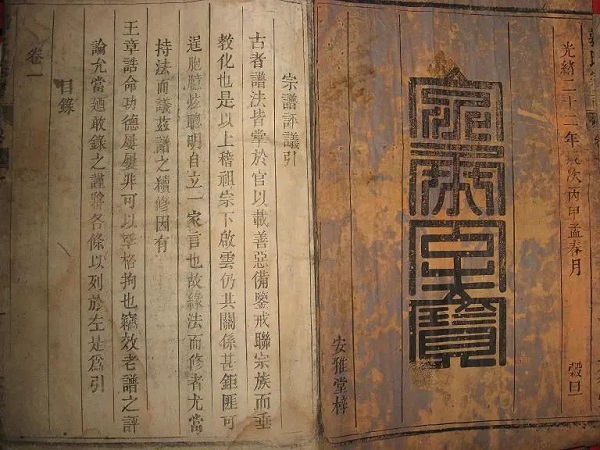 光緒二十二年歲次丙申孟春月 穀旦
寶
安雅堂梓
宗譜評議引
古者譜法皆掌於官以載善惡備鑒戒聯宗族而垂
教化也是以上稽祖宗下啟雲仍其關係甚鉅匪可
逞胸臆炫聰明自立一家言也故緣法而修者尤當
持法而議茲譜之續修因有
王章誥命功德屢屢非可以章格拘也竊效老譜之評
論允當廼敢錄之謹將各條以列於左是爲引
目錄
卷一